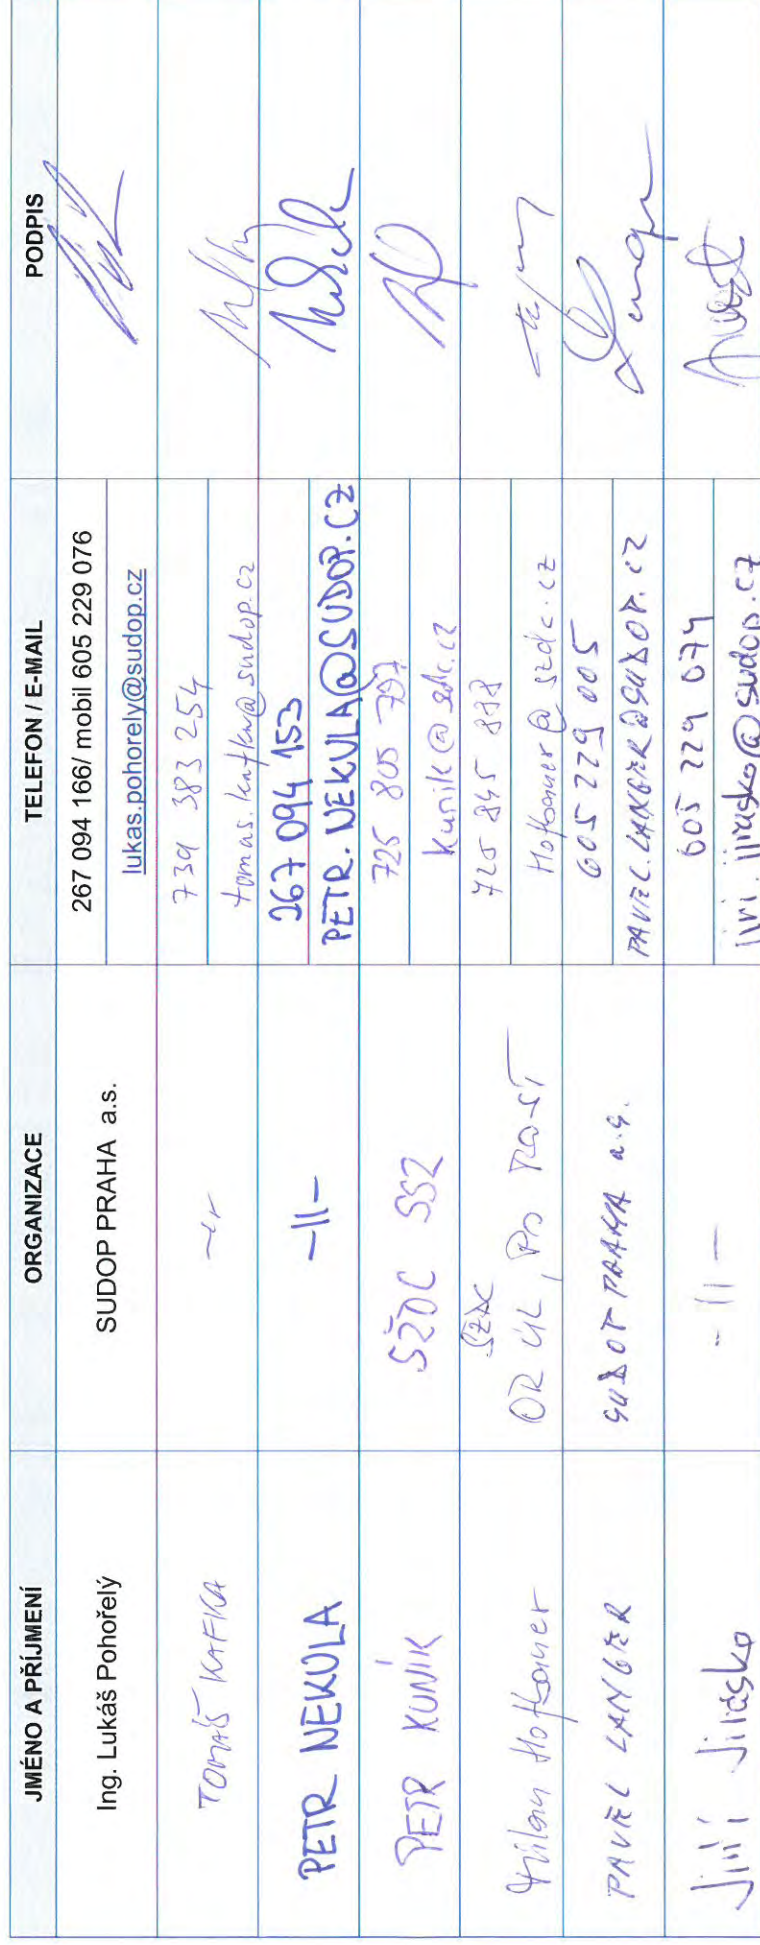 JMÉNO A PŘÍJMENÍ ORGANIZACE TELEFON / E-MAIL PODPIS
Ing. Lukáš Pohořelý SUDOP PRAHA a.s. 267 094 166/ mobil 605 229 076
lukas.pohorely@sudop.cz
TOMÁŠ KAFKA -||- 739 383 254
tomas.kafka@sudop.cz
PETR NEKULA -||- 267 094 153
PETR.NEKULA@SUDOP.CZ
PETR KUNÍK SŽDC SSZ 725 805 797
Kunik@szdc.cz
Milan Hofbauer SŽDC
OŘ ÚL, PO 725 845 888
Hofbauer@szdc.cz
PAVEL LANGER SUDOP PRAHA a.s. 605 229 005
PAVEL.LANGER@SUDOP.CZ
Jiří Jirásko -||- 605 229 074
jiri.jirasko@sudop.cz